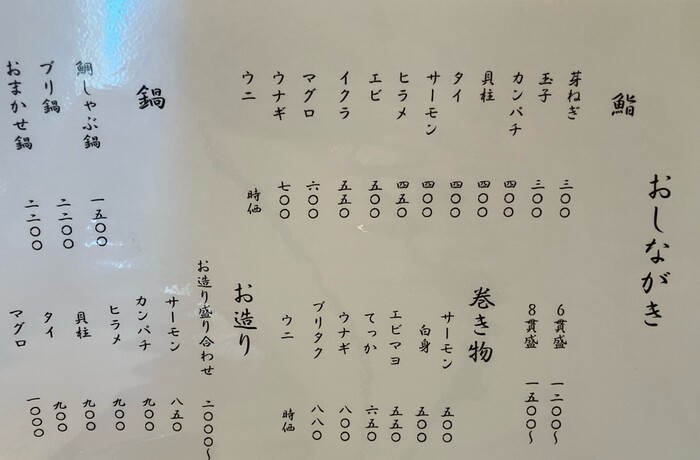 おしながき
鮨
芽ねぎ 三〇〇
玉子 三〇〇
カンパチ 四〇〇
貝柱 四〇〇
タイ 四〇〇
サーモン 四〇〇
ヒラメ 四五〇
エビ 五〇〇
イクラ 五五〇
マグロ 六〇〇
ウナギ 七〇〇
ウニ 時価
6貫盛 一二〇〇〜
8貫盛 一五〇〇〜
巻き物
サーモン 五〇〇
白身 五〇〇
エビマヨ 五五〇
てっか 六五〇
ウナギ 八〇〇
ブリタク 八八〇
ウニ 時価
お造り
お造り盛り合わせ 二〇〇〇〜
サーモン 八五〇
カンパチ 九〇〇
ヒラメ 九〇〇
貝柱 九〇〇
タイ 九〇〇
マグロ 一〇〇〇
鍋
鯛しゃぶ鍋 一五〇〇
ブリ鍋 二二〇〇
おまかせ鍋 二二〇〇